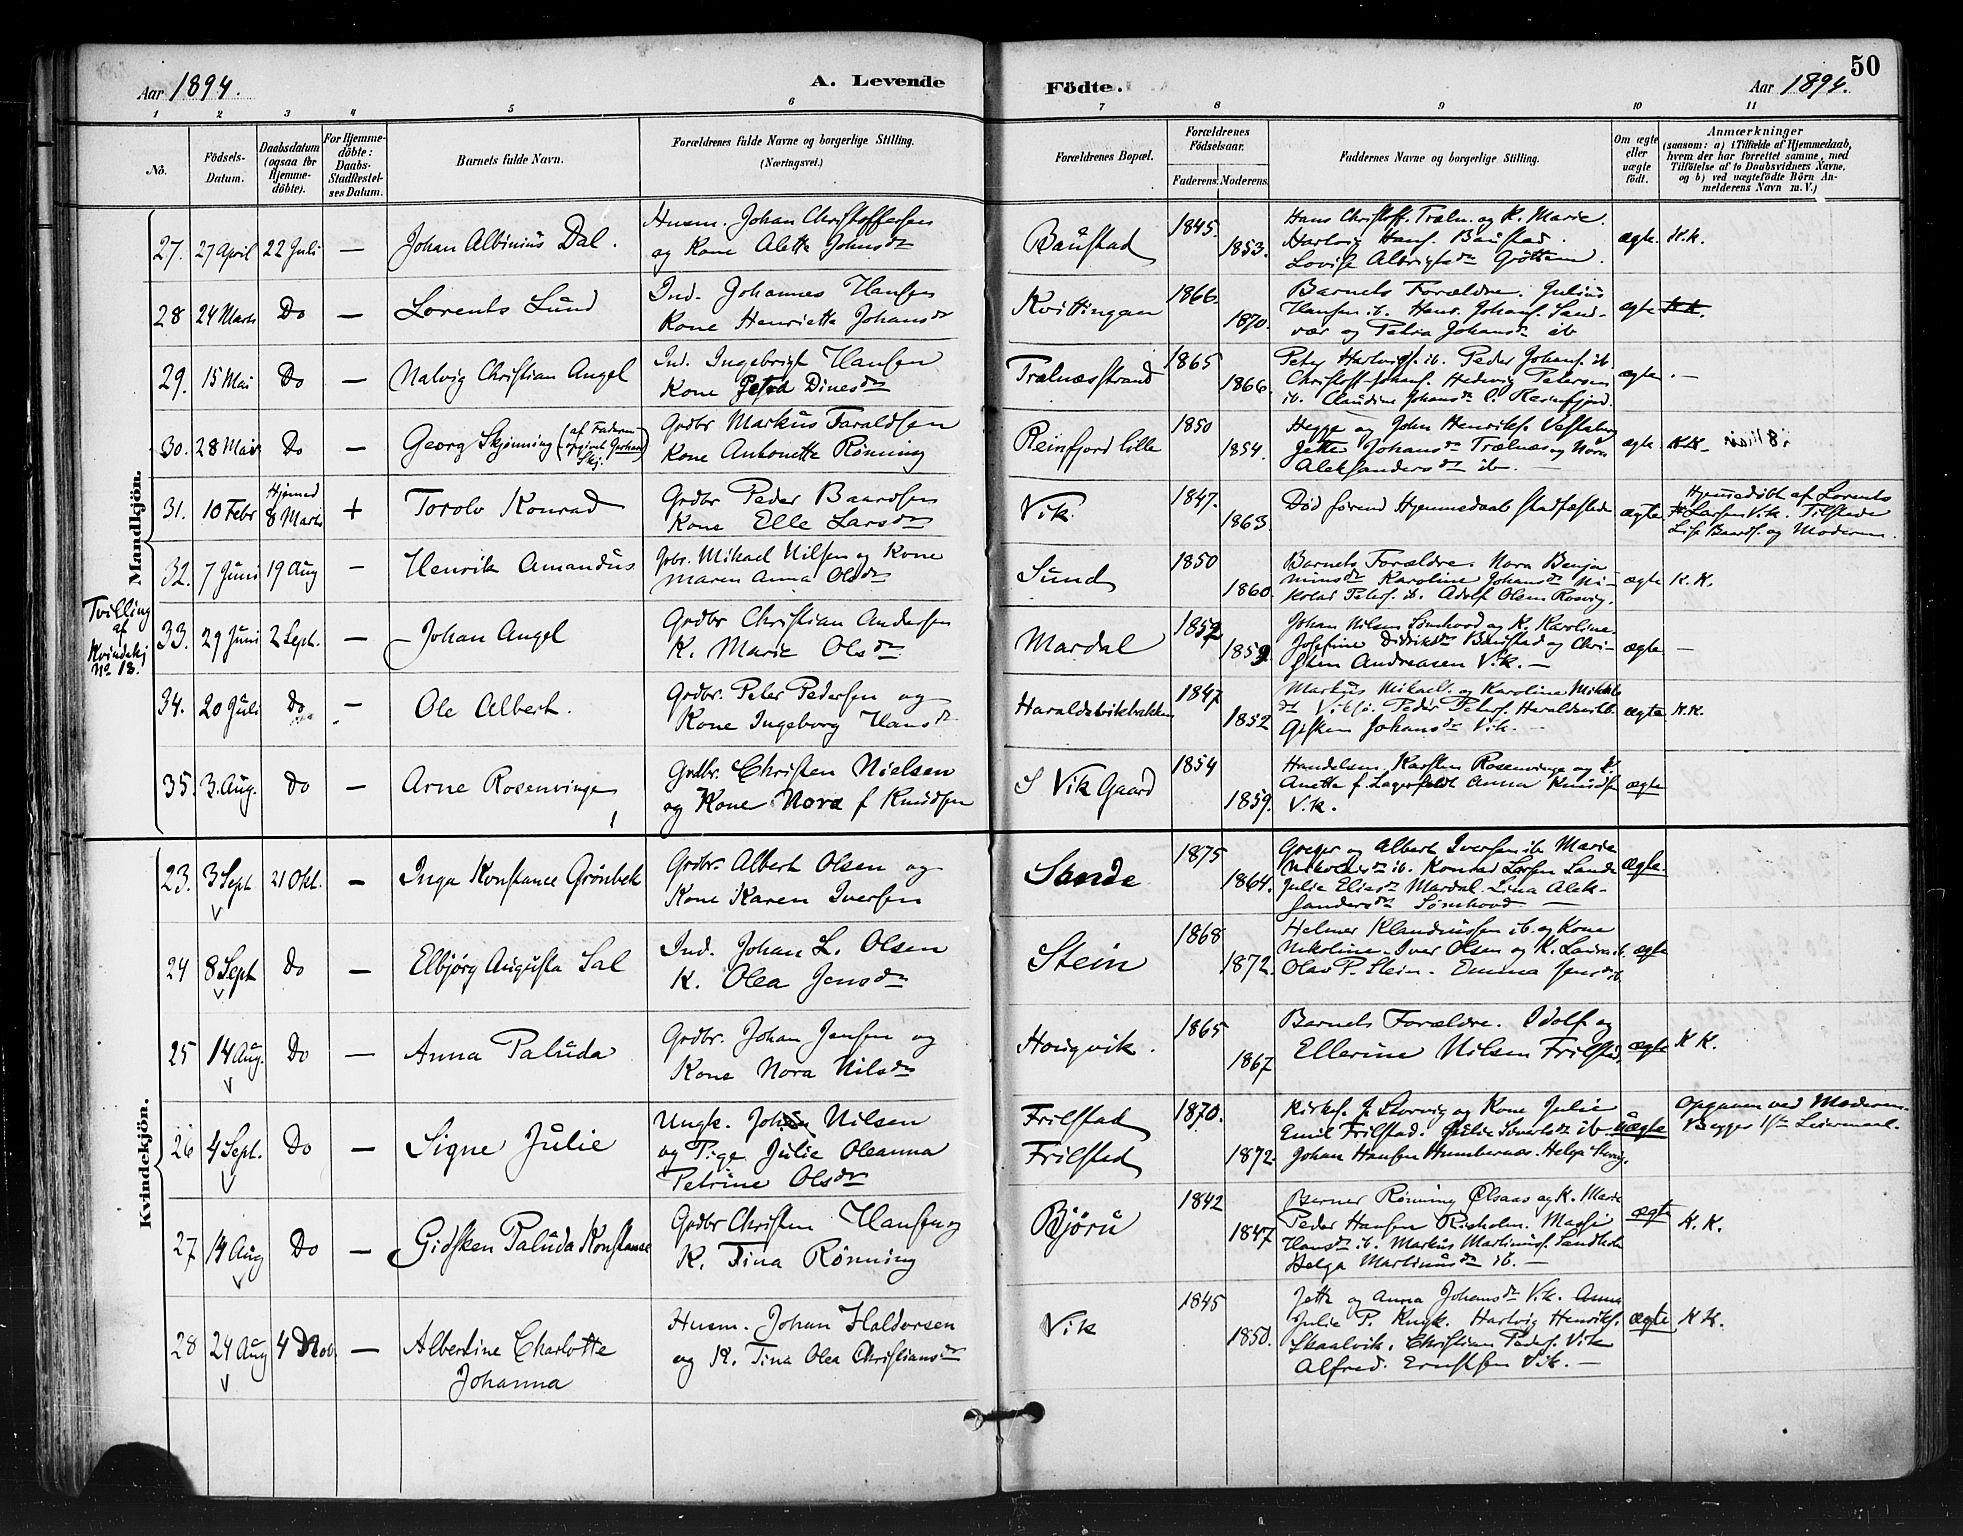 50
Aar 1894.
A. Levende
Födte.
Aar 1894.
1 2 3 4 5 6 7 8 9 10 11
No.
Födsels-Datum.
Daabsdatum (ogsaa for Hjemme-döbte).
For Hjemme-döbte: Daabs-Stadfæstel-ses Datum.
Barnets fulde Navn.
Forældrenes fulde Navne og borgerlige Stilling. (Næringsvei.)
Forældrenes Bopæl.
Forældrenes Födselsaar.
Faderens. Moderens.
Faddernes Navne og borgerlige Stilling.
Om ægte eller uægte födt.
Anmærkninger (saasom: a) i Tilfælde af Hjemmedaab, hvem der har forrettet samme, med Tilföielse af to Daabsvidners Navne, og b) ved uægtefödte Börn An-melderens Navn m. V.)
Mandkjön.
27. 27 April 22 Juli — Johan Albinius Dal.
Husm. Johan Christoffersen
og Kone Alette Johnsdr
Baustad 1845. 1853.
Hans Christoff. Træln. og K. Marie.
Hartvig Hans. Baustad.
Lovise Albrigtsdr
ægte. K.K.
28 24 Marts Do — Lorents Lund
Ind. Johannes Hansen
Kone Henriette Johansdr
Kvittingen 1866. 1870.
Barnets Forældre. Julius
Hansen ib. Hans Johans. Sand-
vær og Petra Johansdr ib
ægte K.K.
29. 15 Mai Do — Nalvig Christian Angel
Ind. Ingebrigt Hansen
Kone Petra Dinesdr
Trælnæsstrand 1865 1866.
Peter Hartvigs. ib. Peder Johans. ib.
Christoff. Johans. Hedevig Petersen
ib. Claudine Johansdr Reinfjord.
ægte. —
30. 28 Mai Do — Georg Skjønning (af Faderen
opgivet Gerhard
Skj.)
Grdbr Markus Faraldsen
Kone Antonette Rønning
Reinfjord lille 1850 1854.
Heppe og John Henriks. Vestaby
Jette Johansdr Trælnæs og Nora
Aleksandersdr ib. —
ægte K.K.
31. 10 Febr Hjemmed 8 Marts + Torolv Konrad
Grdbr Peder Baardsen
Kone Elle Larsdr
Vik. 1847. 1863.
Død forend Hjemmedaab stadfæstede
ægte
Hjemmedöbt af Lorents
Larsen Vik. Tilstede
Lise Baards. og Moderen.
32. 7 Juni 19 Aug — Henrik Amandus
Grbr. Mikael Nilsen og Kone
Maren Anna Olsdr
Sund 1850 1860
Barnets Forældre. Nora Benja
minsdr Karoline Johansdr Ni-
kolai Peters. ib. Adolf Olsen Rosvig.
ægte K.K.
Tvilling
af
Kvindekj
No 18.
33. 29 Juni 2 Sept. — Johan Angel
Grdbr Christian Andersen
K. Marie Olsdr
Mardal 1852 1859
Johan Nilsen Sømhovd og K. Karoline.
Josefine Didriksdr Baustad og Chri-
sten Andreasen Vik. —
ægte —
34. 20 Juli Do — Ole Albert.
Grdbr. Peter Pedersen og
Kone Ingeborg Hansdr
Haraldsvikbakken 1847 1852
Markus Mikael. og Karoline Mikkels
dr Viksø. Peder Peters. Haraldsvikb.
Gisken Johansdr Vik. —
ægte K.K.
35 3. Aug. Do — Arne Rosenvinge
Grdbr. Christen Nielsen
og Kone Nora f Knudsen
S Vik Gaard 1854 1859.
Handelsm. Karsten Rosenvinge og K.
Anette f. Lagerfeldt Anna Knudsen
Vik.
ægte
Kvindekjön.
23. 3 Sept 21 Okt. — Inga Konstance Grønbek
Grdbr. Albert Olsen og
Kone Karen Iversen
Sande 1875 1864.
Greger og Albert Iversen ib Marie
Nikolaisdr ib. Konrad Larsen Sande
Julie Eliasdr Mardal. Lina Alek-
sandersdr Sømhovd —
ægte
24 8 Sept Do — Elbjørg Augusta Sal
Ind. Johan L. Olsen
K. Olea Jensdr
Stein 1868 1872
Helmer Klaudiussen ib. og Kone
Nikoline. Iver Olsen og K. Laura ib.
Olav P. Stein. Emma Jensdr ib.
ægte
25 14 Aug. Do — Anna Paluda
Grdbr. Johan Jensen og
Kone Nora Nilsdr
Hougvik. 1865 1867
Barnets Forældre. Odolf og
Ellerine Nilsen Frilstad.
ægte K K.
26 4 Sept. Do — Signe Julie
Ungk. Johan Nilsen
og Pige Julie Oleanna
Petrine Olsdr
Frilstad
Frilstad
1870. 1872.
Kirkes. J. Storvig og Kone Julie
Emil Frilstad. Julie Sivertsdr ib
Johan Hansen Humbernæs. Helga Storvig.
uægte
Opgiven ved Moderen.
Begges 1ste Leiermaal.
27 14 Aug Do — Gidsken Paluda Konstanse
Grdbr Christen Hansen og
K. Tina Rønning
Bjørü 1842 1847
Berner Rønning Ølsaas og K. Marie
Peder Hansen Risholm. Massi
Hansdr ib. Markus Martinus. Sandholm
Helga Martinusdr ib. —
ægte K.K.
28 24 Aug 4 Nov. — Albertine Charlotte
Johanna
Husm. Johan Haldorsen
og K. Tina Olea Christiansdr
Vik 1845 1850.
Jette og Anna Johansdr Vik. Anna
Julie P. Kugk. Hartvig Henriks.
Skaalvik. Christian Peders. Vik
Alfred. Ernstsen Vik. —
ægte K K.